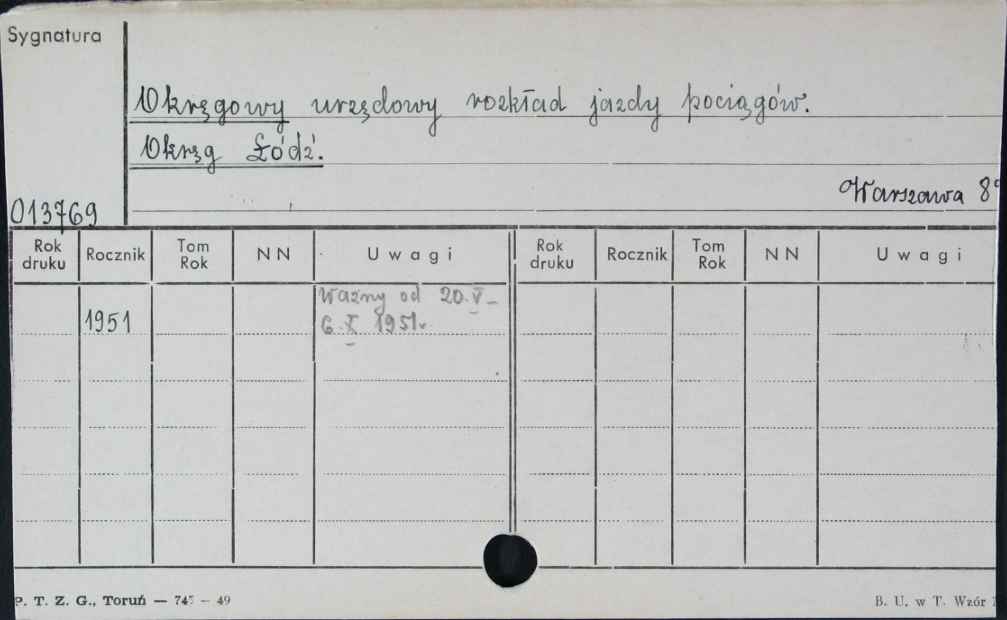 Sygnatura
Okręgowy urzędowy rozkład jazdy pociągów.
Okręg Łódź.
Warszawa 8°
013769
Rok druku Rocznik Tom Rok N N U w a g i Rok druku Rocznik Tom Rok N N U w a g i
Ważny od 20.V–
1951 6.X 1951r.
P. T. Z. G., Toruń — 745 – 49 B. U. w T. Wzór